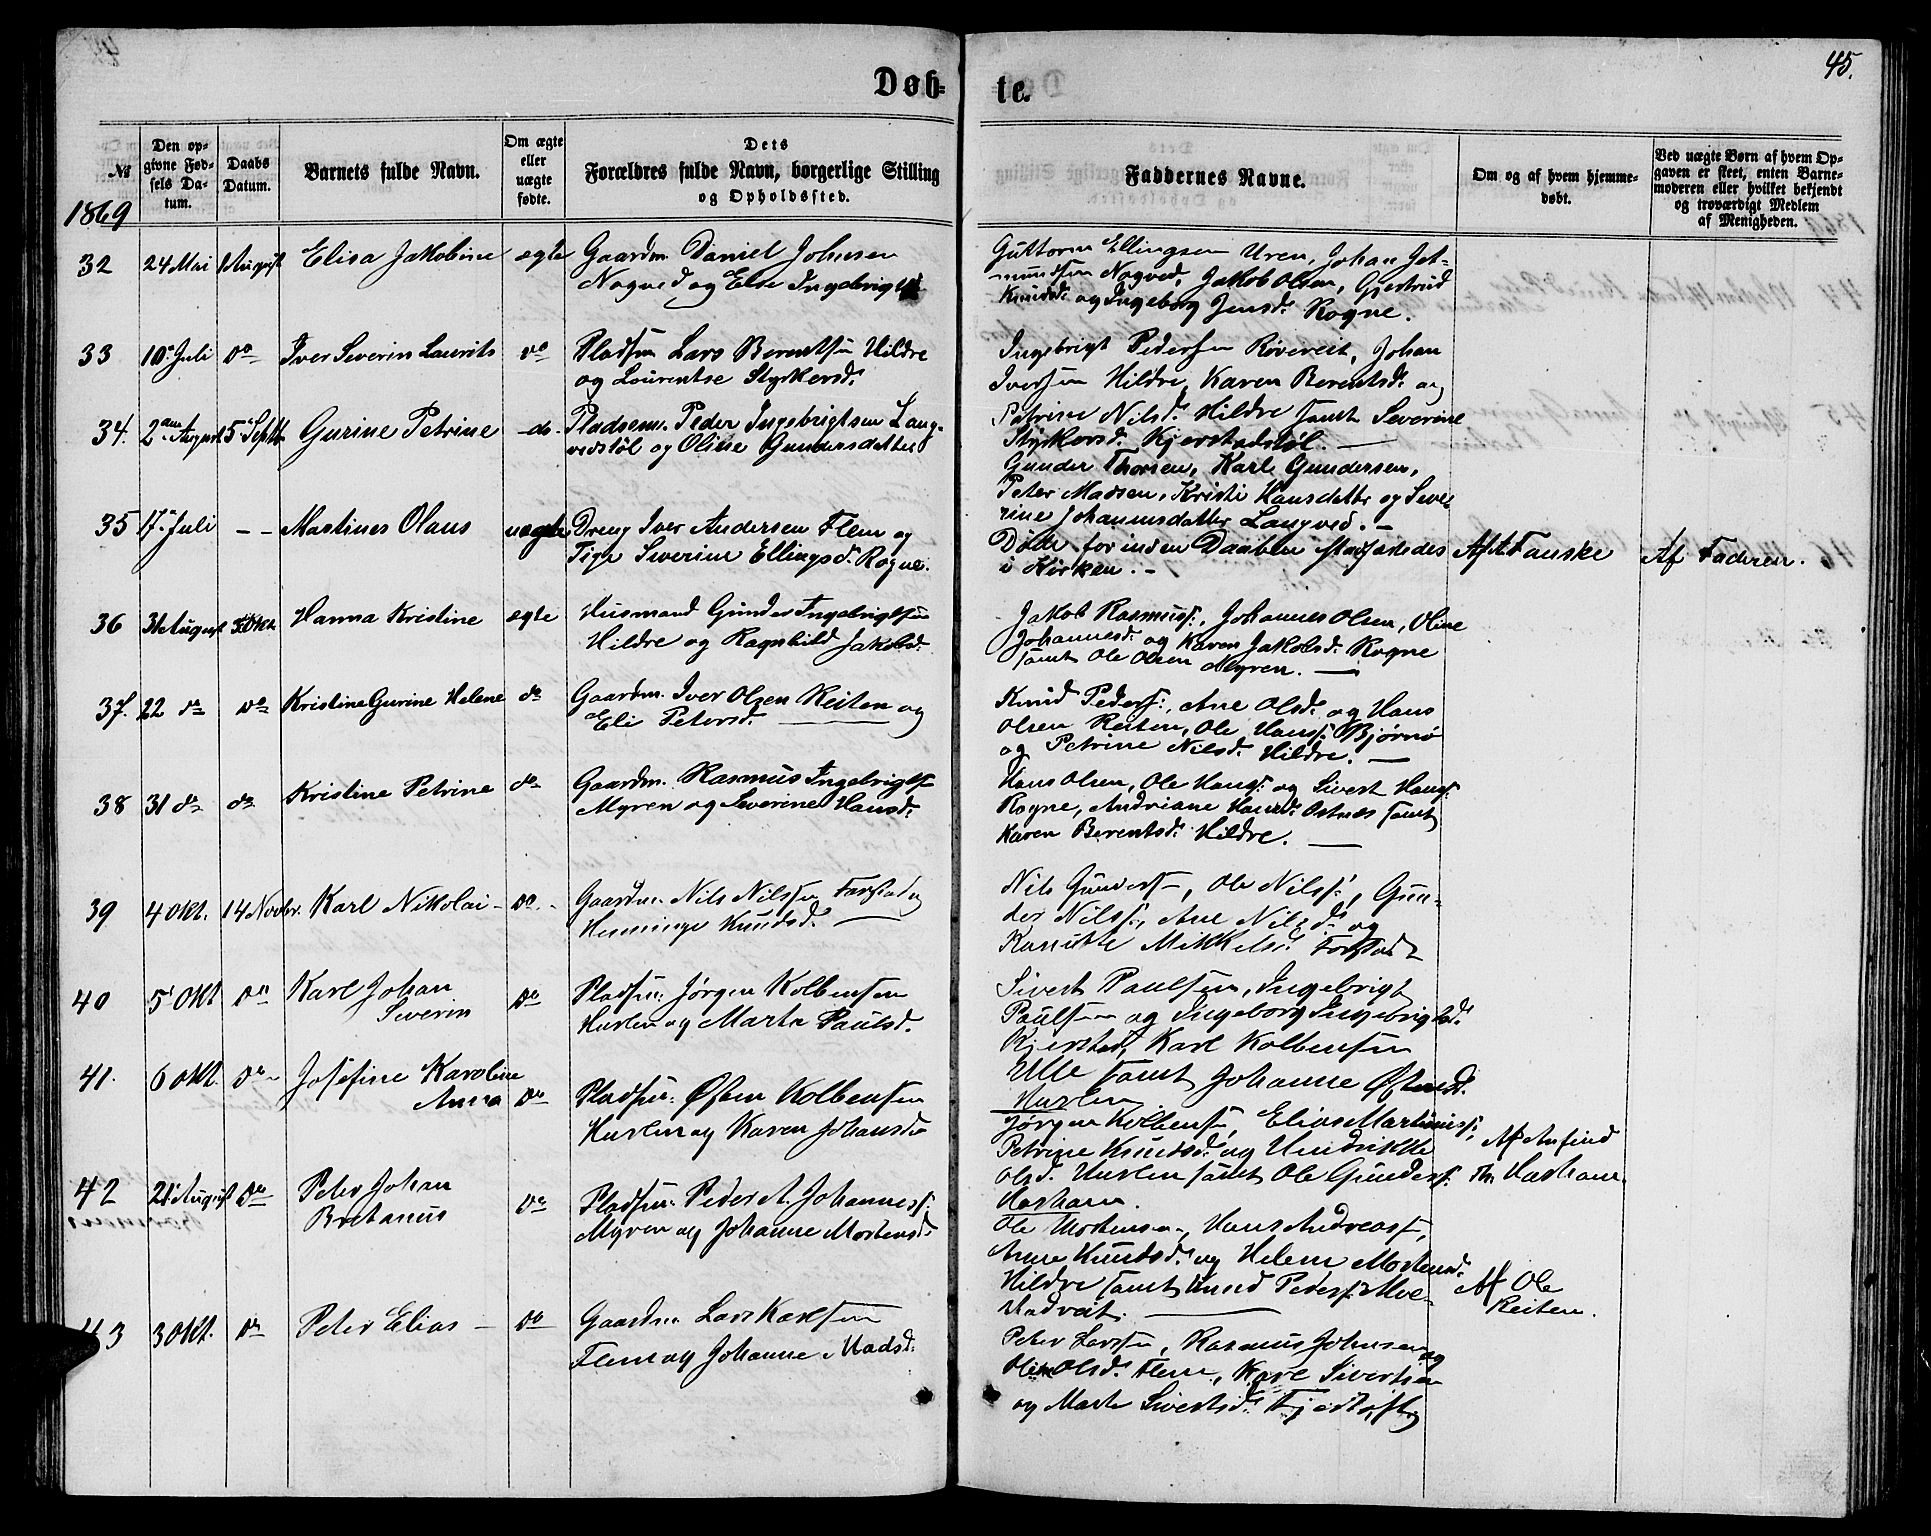 45.
Døbte.
№
Den opgivne Fødsels Datum.
Daabs Datum.
Barnets fulde Navn.
Om ægte eller uægte fødte.
Dets Forældres fulde Navn, borgerlige Stilling og Opholdssted.
Faddernes Navne.
Om og af hvem hjemmedøbt.
Ved uægte Børn af hvem Opgaven er skeet, enten Barnemoderen eller hvilket bekjendt og troværdigt Medlem af Menigheden.
1869
32 24 Mai 1 August Elisa Jakobine ægte Gaardm. Daniel Johnsen
Nogved og Else Ingebrigtsd
Guttorm Ellingsen Uren, Johan Jet-
mundsen Nogved, Jakob Olsen, Gjertrud
Knudsd. og Ingeborg Jensd. Rogne.
33 10. Juli do Iver Severin Laurits do Pladsm Lars Berentsen Hildre
og Lourentse Styrkersd.
Ingebrigt Pedersen Røvereit, Johan
Iversen Hildre, Karen Berentsd. og
Petrine Nilsd. Hildre samt Severine
Styrkersd. Kjerstadstøl. —
34. 2den August 5. Septbr Gurine Petrine do. Pladsm. Peder Ingebrigtsen Lang-
vedstøl og Oline Gundersdatter
Gunder Thorsen, Karl Gundersen,
Peter Madsen, Kristi Hansdatter og Seve-
rine Johannsdatter Langved. —
35 17. Juli - - Martines Olaus uægte Dreng Iver Andersen Flem og
Pige Severine Ellingsd. Rogne.
Døde forinden Daaben stadfæstedes
i Kirken. —
Af A. Fauske
Af Faderen.
36 31 August 3. Okt. Hanna Kristine ægte Husmand Gunder Ingebrigtsen
Hildre og Ragnhild Jakobsd.
Jakob Rasmuss., Johannes Olsen, Oline
Johannesd. og Karen Jakobsd. Rogne
samt Ole Olsen Myren. —
37. 22 do do Kristine Gurine Helene do Gaardm. Iver Olsen Reiten og
Eli Petersd. —
Knud Peders., Ane Olsd. og Hans
Olsen Reiten, Ole Hanss. Bjørnø
og Petrine Nilsd. Hildre. —
38 31 do do Kristine Petrine do Gaardm. Rasmus Ingebrigts
Myren og Severine Hansd.
Hans Olsen, Ole Hans. og Sivert Hans.
Rogne, Andriane Hansd. Ostnæs samt
Karen Berentsd. Hildre. —
39 4 Okt. 14 Novbr. Karl Nikolai - do - Gaardm. Nils Nilssen Farstad og
Henninge Knudsd. —
Nils Gunders, Ole Nilss., Gun-
der Nilss., Ane Nilsd. og
Mikkelsd. Farstad
40 5 Okt do Karl Johan
Severin do Pladsm. Jørgen Kolbensen
Huslen og Marta Paulsd.
Sivert Paulsen, Ingebrigt
Paulsen og Ingeborg Ingebrigtsd.
Kjerstad, Karl Kolbensen
Ulle samt Johanne Østensd.
Huslen
41. 6 Okt. do Josefine Karoline
Anna do Pladsm. Østen Kolbensen
Huslen og Karen Johansd
Jørgen Kolbens, Elias Martiniuss.,
Petrine Knudsd. og Hendrikke
Olsd. Huslen samt Ole Gunders.
Harham.
Af Anfind
Th. Harham.
42 21. August do Peter Johan
Bretanus do Pladsm. Peder A. Johanness.
Myren og Johanne Mortensd
Ole Mortensen, Hans Andreass,
Anne Knudsd. og Helene Mortensd.
Hildre samt Knud Peders. Moe-
stadveit. —
Af Ole
Reiten.
43 3 Okt. do Peter Elias - do Gaardm. Lars Karlsen
Flem og Johanne Madsd.
Peter Larsen, Rasmus Johnsen og
Oline Olsd. Flem, Karl Sivertsen
og Marte Sivertsd. Fjærtoft